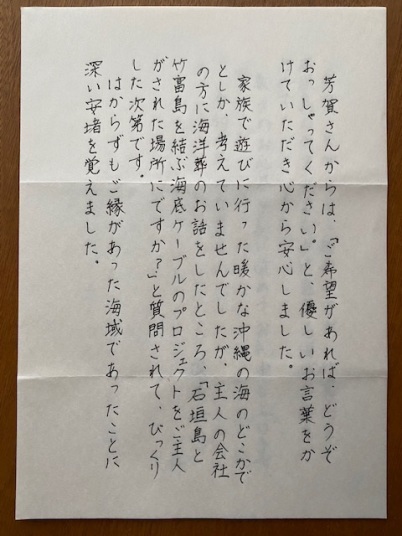 芳賀さんからは、「ご希望があれば、どうぞ
おっしゃってください。」と、優しいお言葉をか
けていただき心から安心しました。
家族で遊びに行った暖かな沖縄の海のどこかで
としか、考えていませんでしたが、主人の会社
の方に海洋葬のお話をしたところ、「石垣島と
竹富島を結ぶ海底ケーブルのプロジェクトをご主人
がされた場所にですか?」と質問されて、びっくり
した次第です。
はからずもご縁があった海域であったことに
深い安堵を覚えました。